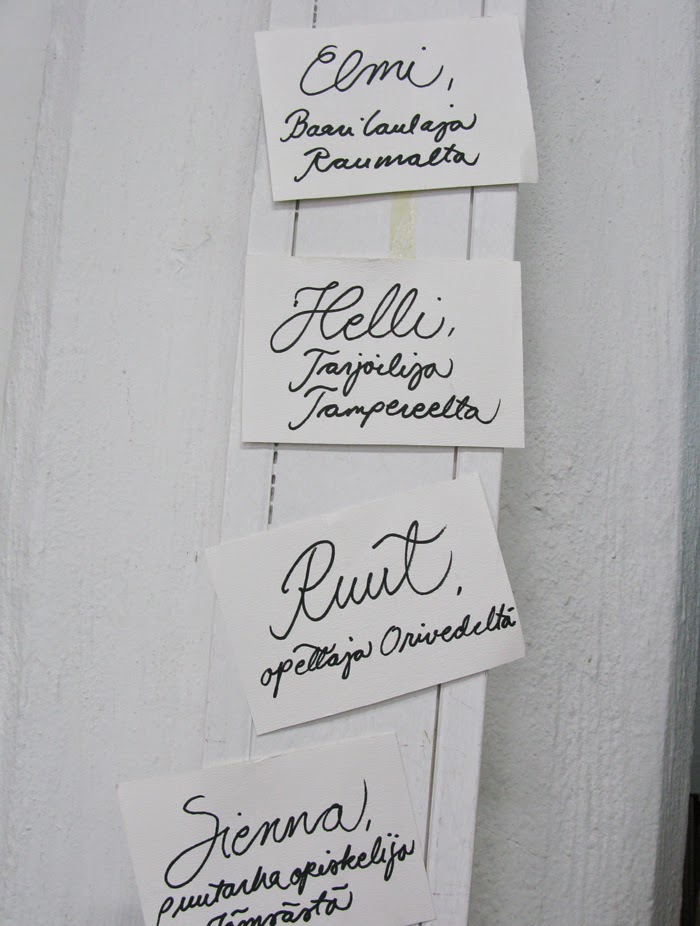 Elmi,
Baarilaulaja
Raumalta
Helli,
Tarjoilija
Tampereelta
Ruut,
opettaja Orivedeltä
Sienna,
puutarhaopiskelija
Jämsästä